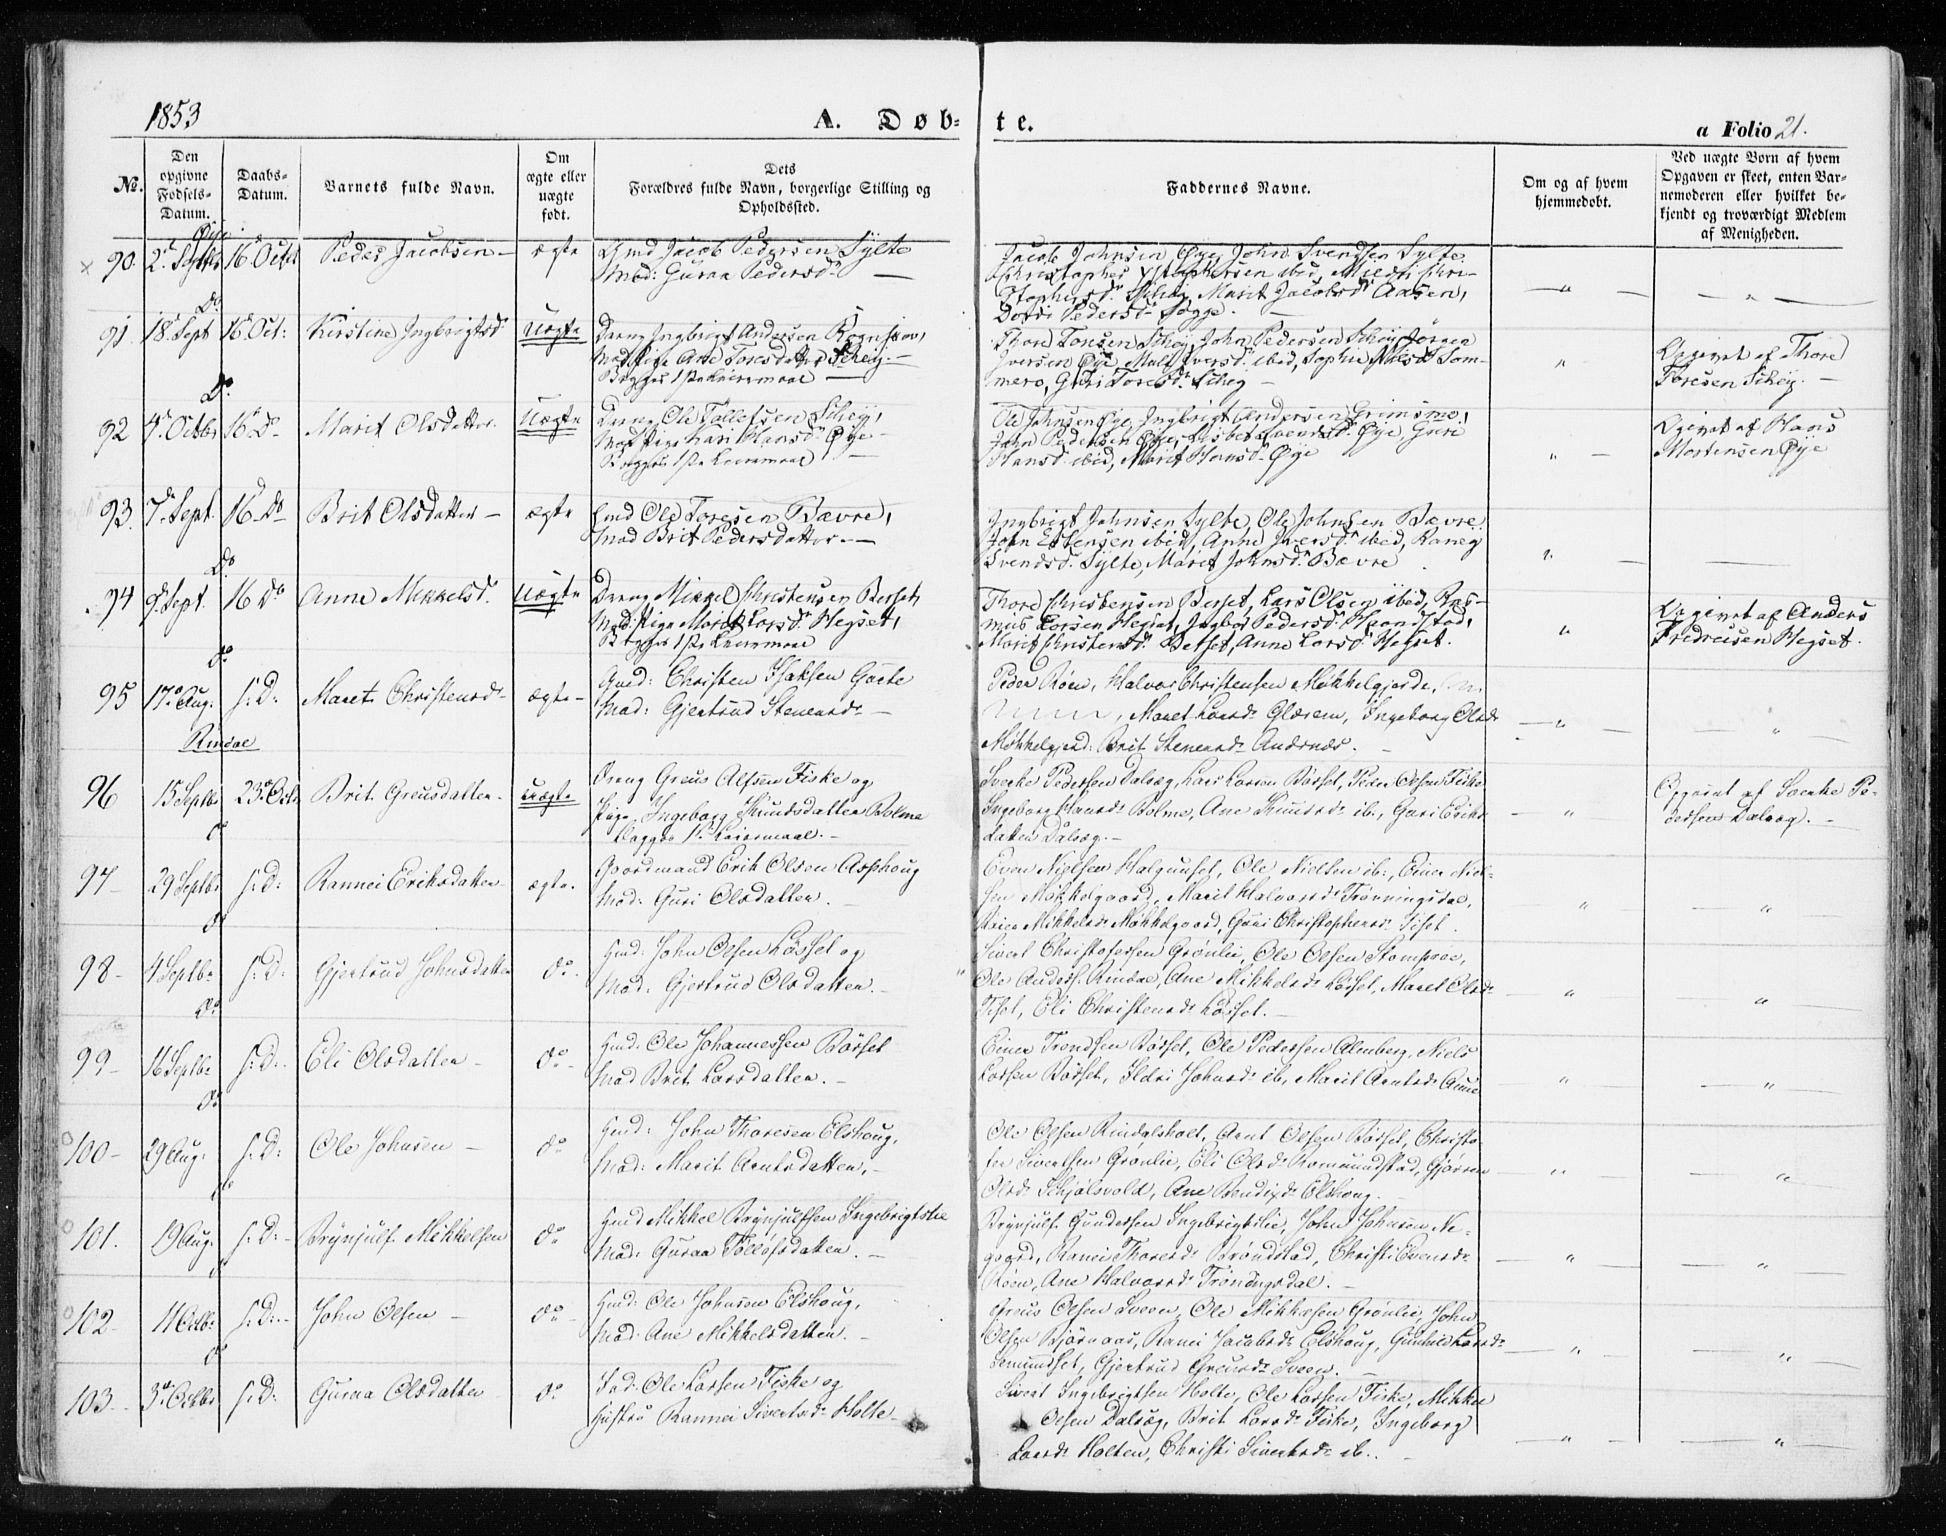 1853
A. Døb-
te.
a Folio 21.
No.
Den opgivne Fødsels-Datum.
Daabs-Datum.
Barnets fulde Navn.
Om ægte eller uægte født.
Dets Forældres fulde Navn, borgerlige Stilling og Opholdssted.
Faddernes Navne.
Om og af hvem hjemmedøbt.
Ved uægte Børn af hvem Opgaven er skeet, enten Barnemoderen eller hvilket bekjendt og troværdigt Medlem af Menigheden.
Øye
90. 2 Septbr 16 Octbr Peder Jacobsen - ægte Gmd Jacob Pedersen Sylte
Mod: Guraa Pedersdr
Jacob Johnsen Øye, John Svendsen Sylte
ibid,
Marit Jacobsdr Aasen,
Dordi PedersdrÆgge.
Do
91 18 Sept 16 Oct: Kirstine Ingbrigtsd. Uægte Dreng Ingbrigt Andersen Rognskov,
Mod Pige Ane Toresdatter Schei
Begges 1ste Leiermaal
Thore Tonsen Schei, John Pedersen Schei, Jørgen
Iversen Øye, Iversdr ibid, Sophie Nilsdr Sommero, Guri Toresdr Scheg
Opgivet af Thore
Toresen Schey.
Do
92 4 Octbr 16 Do Marit Olsdatter. Uægte Dreng Ole Tollefsen Schey,
Mod Pige Kari Hansdr Øye
Begges 1ste Leiermaal
Ole Johnsen Øye, Ingbrigt Andersen Grimsmo,
John Pedersen Øye, Lisbet Svendsdr Øye, Guri
Hansd. ibid, Marit Hansd. Øye
Opgivet af Hans
Mortensen Øye
93. 7 Sept. 16 Do Brit Olsdatter - ægte Gmd Ole Toresen Bævre,
Mod Brit Pedersdatter.
Ingbrigt Johnsen Sylte, Ole Johnsen Bævre
John Estensen ibid, Anne Iversdr ibid, Raneg
Svendsd. Sylte, Marit Johnsdr Bævre
Do.
94 9 Sept. 16 Do Anne Mikkelsd. Uægte Dreng Mikkel Christensen Berset,
Mod Pige Marit Larsd. Hegset,
Begges 1ste Leiermaal
Thore Christensen Berset, Lars Olsen ibid, Rasmus Larsen Hegset, Ingbor Pedersdr
Marit Christensd. Berset, Anne Larsd. Hegset.
Opgivet af Anders
Fredreisen Hegset.
do
95 17 Aug. s: D: Maret Christensdr ægte Gmd: Christen Isaksen
Mod: Gjertrud Stenersdr
Peder Røen, Halvor Christensen Mökkelgjerde,
Maret Larsdr Glærem, Ingeborg Olsdr
Mökkelgjerd: Brit Stenersdr Andsnæs.
Rindal
96 15 Septbr 23 Octbr Brit Greusdatter uægte Dreng Greus Alfsen Fiske og
Pige Ingeborg Knudsdatter Bolme
begges 1ste Leiermaal.
Sverke Pedersen Dalsæg, Lars Larsen Børset, Peder Olsen Fiske
Ingeborg Hansdr Bolme, Ane Knutsdr ib., Guri Eriksdatter Dalsæg.
Opgivet af Sverke Pedersen Dalsæg.
do
97 29 Septbr s: D: Rannei Eriksdatter ægte. Gaardmand Erik Olsen Asphoug
Mod: Guri Olsdatter.
Even Nielsen Halgunset, Ole Nielsen ib:, Einer Nielsen Mökkelgaard, Marit Halvorsdr Trønningsdal,
Mikkelsdr Mökkelgaard, Guri Christophersdr Tiset.
do
98 4 Septbr s: D: Gjertrud Johnsdatter do. Gmd: John Olsen Løsset og
Mod: Gjertrud Olsdatter.
Sivert Christofersen Grønlie, Ole Olsen Stomproe,
Ole Anders. Rindal, Ane Mikkelsdr Løsset, Maret Olsdr
Tiset, Eli Christensdr Løsset.
do
99 16 Septbr s: D: Eli Olsdatter do. Gmd: Ole Johannessen Børset
Mod Brit Larsdatter.
Einer Trondsen Børset, Ole Pedersen Almberg, Niels
Larsen Børset, Ildri Johnsdr ib, Marit Arntsdr Aune
do
100 29 Aug. s: D: Ole Johnsen do Gmd: John Thoresen Elshoug,
Mod: Marit Arntsdatter,
Ole Olsen Rindalsholt, Arnt Olsen Børset, Christofer Sivertsen Grønlie, Eli Olsdr Romundstad, Gjøren
Olsdr Schjølsvold, Ane Bendixdr Elshoug.
do
101. 19 Aug. s: D: Brynjulf Mikkelsen do Gmd Mikkel Brynjulfsen Ingebrigtslie
Mod: Guraa Tølløfsdatter.
Brynjulf Gundersen Ingebrigtslie, John Johnsen Negaard, Rannei Thoresdr Brøndstad, Christi Evensdr
Røen, Ane Halvorsdr Trøningsdal.
do
102 11 Octbr s: D: John Olsen do Gmd: Ole Johnsen Elshoug,
Mod: Ane Mikkelsdatter.
Greus Olsen Sveen, Ole Mikkelsen Grønlie, John
Olsen Bjørnaas, Ranei Jacobsdr Elshoug, Gunhild Larsdr
Romundset, Gjertrud Greusdr Sveen.
do
103 3 Octbr s: D: Guraa Olsdatter do. Ind: Ole Larsen Fiske og
Hustru Rannei Sivertsdr Holte
Sivert Ingebrigtsen Holte, Ole Larsen Fiske, Mikkel
Olsen Dalsæg, Brit Larsdr Fiske, Ingeborg
Larsdr Holten, Christi Sivertsdr ib.